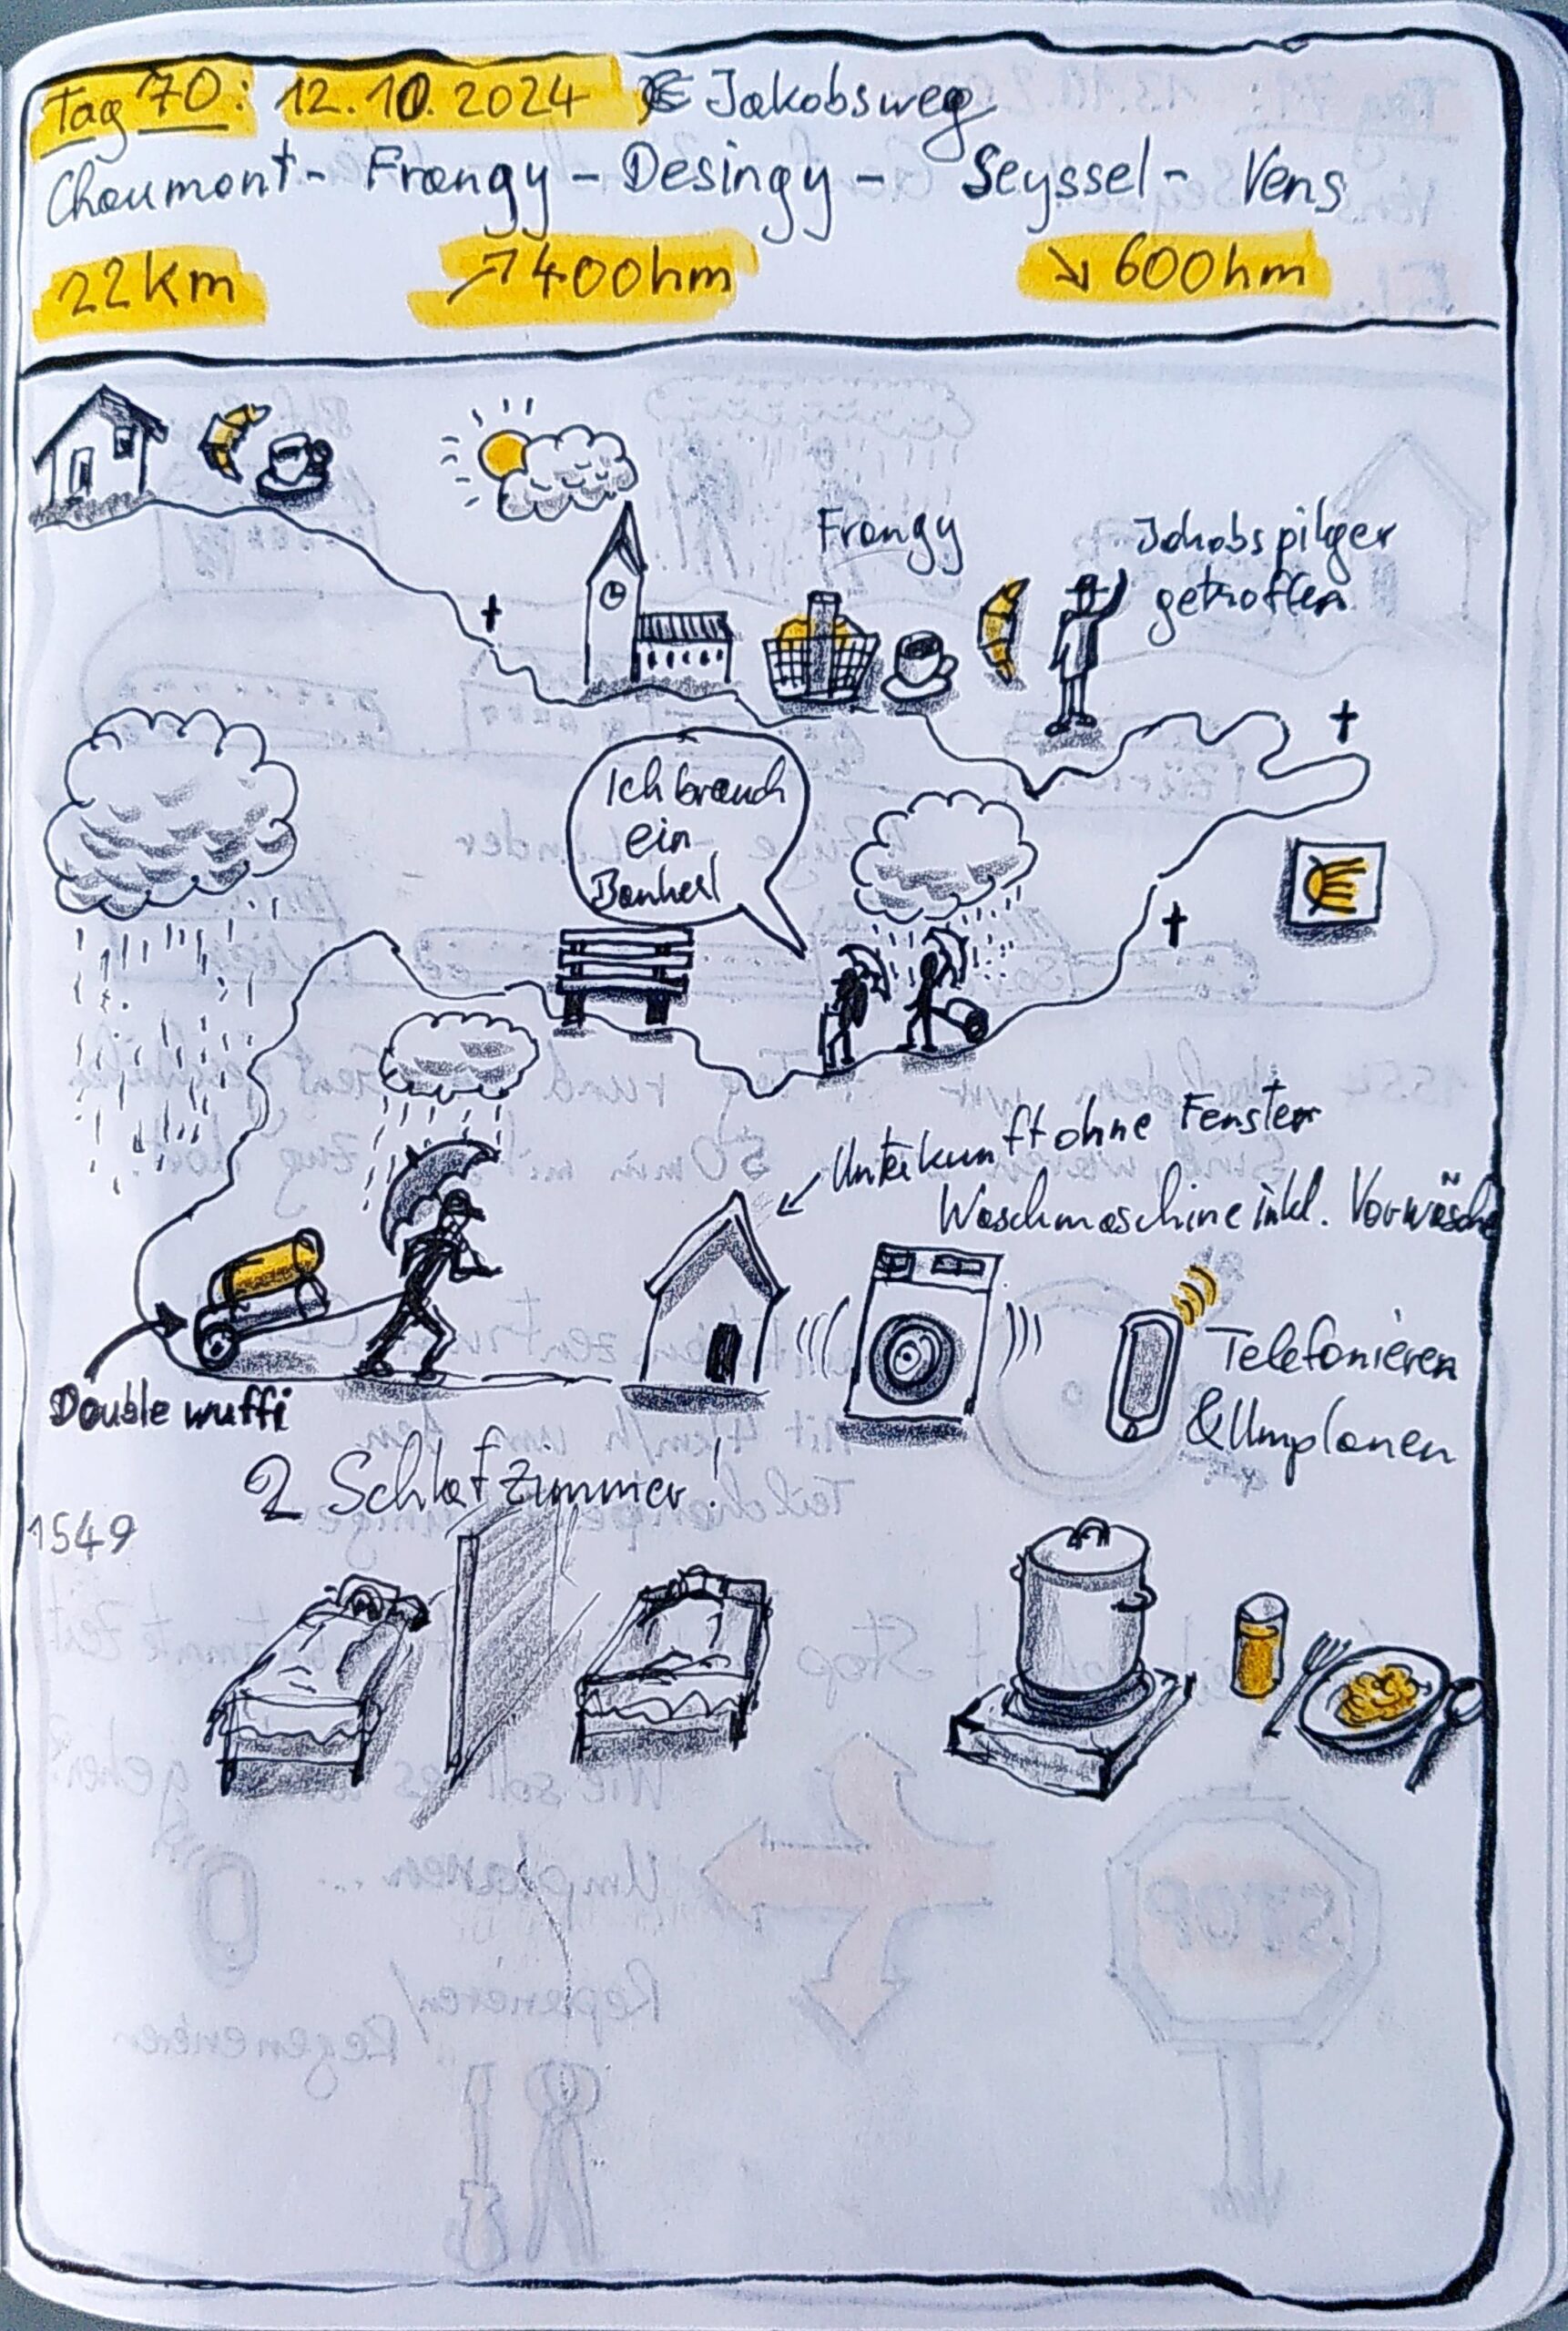 Tag 70: 12.10.2024 Jakobsweg
Chaumont - Frangy - Desingy - Seyssel - Vens
22km ↗400hm ↘600hm
Frangy
Jakobspilger
getroffen
Ich brauch
ein
Bankerl
Unterkunft ohne Fenster
Waschmaschine inkl. Vorwäsche
Telefonieren
& Umplanen
Double wuffi
2 Schlafzimmer!
1549